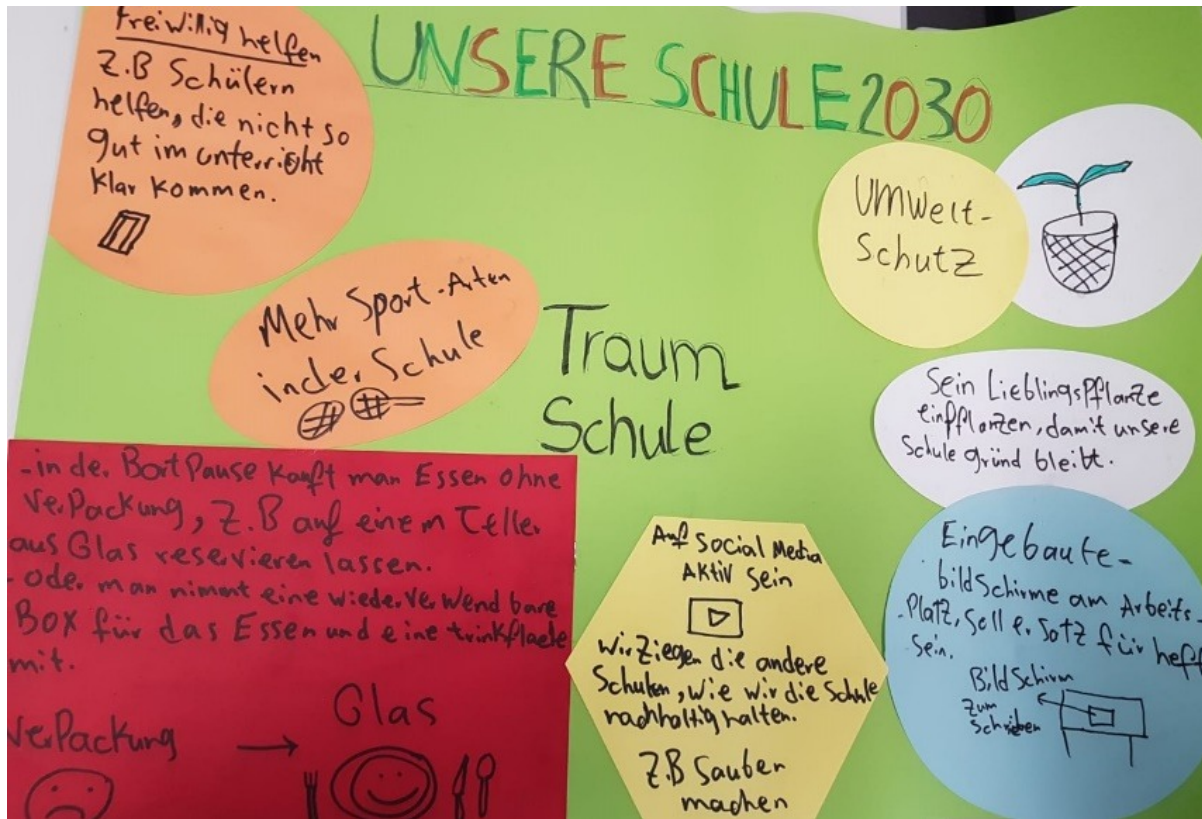 UNSERE SCHULE 2030
Freiwillig helfen
Z.B Schülern
helfen, die nicht so
gut im unterricht
Klar kommen.
Mehr Sport-Arten
in der Schule
Traum
Schule
UMWelt-
Schutz
Sein Lieblingspflanze
einpflanzen, damit unsere
Schule gründ bleibt.
-in der BortPause kauft man Essen ohne
VerPackung, Z.B auf einem Teller
aus Glas reservieren lassen.
- oder man nimmt eine wiederverwendbare
Box für das Essen und eine
mit.
VerPackung → Glas
Auf Social Media
AKtiv Sein
wir Ziegen die andere
Schulen, wie wir die Schule
nachhaltig halten.
Z.B Sauber
machen
Eingebaute-
bildSchirme am Arbeits-
-Platz, soll ersatz für heft
sein.
BildSchirm
zum